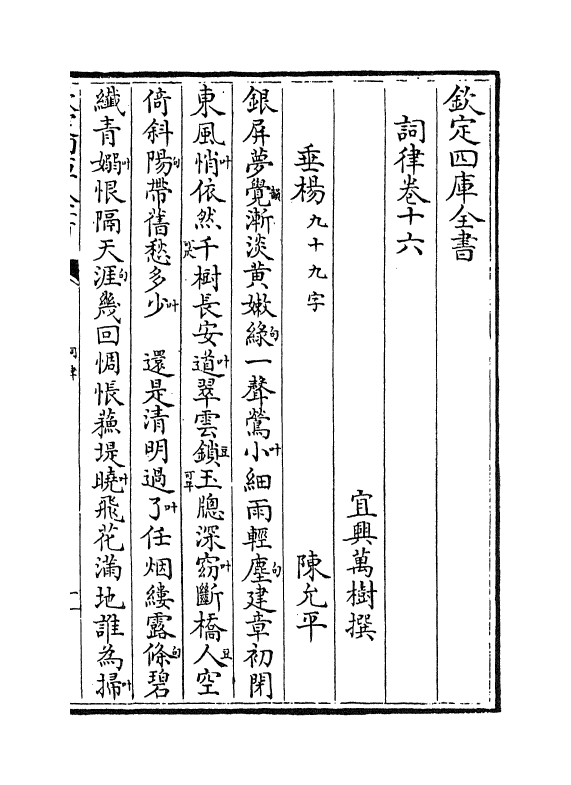 欽定四庫全書
詞律卷十六
宜興萬樹撰
垂楊九十九字 陳允平
銀屛夢覺韻漸淡黃嫩綠句一聲鶯小叶細雨輕塵句建章初閉
東風悄叶依然千可仄樹長安道叶翠雲鎖豆玉可平牕深窈叶斷橋人豆空
倚斜陽句帶舊愁多少叶 還是清明過了叶任烟縷露條句碧
纖青嫋叶恨隔天涯句幾回惆悵蘓堤曉叶飛花滿地誰為掃叶
詞律